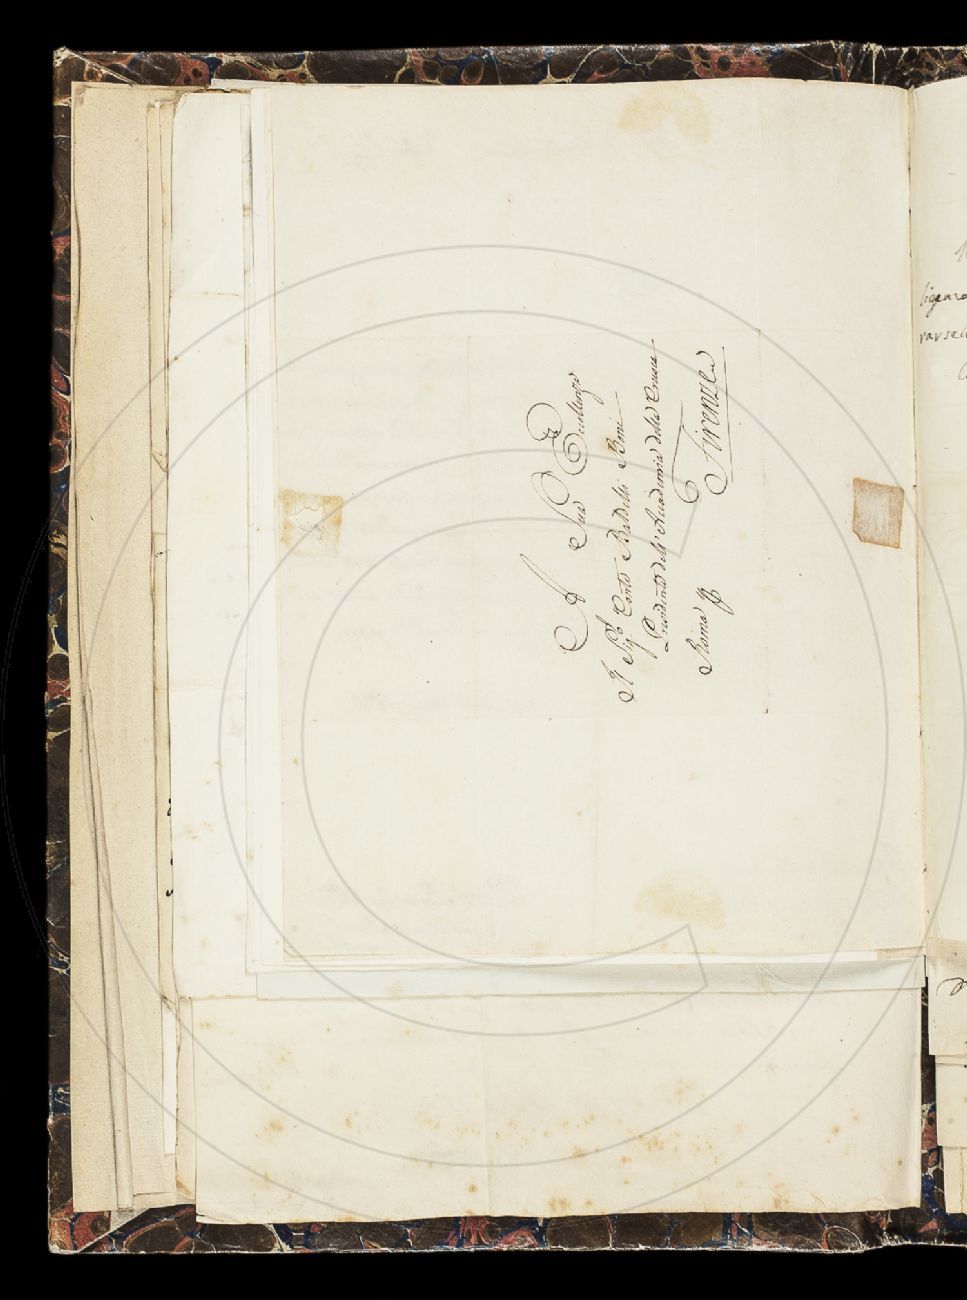 A Sua Eccellenza
Il Sig.r Conte Baldelli Boni
Presidente dell'Accademia della Crusca
Roma per
Firenze